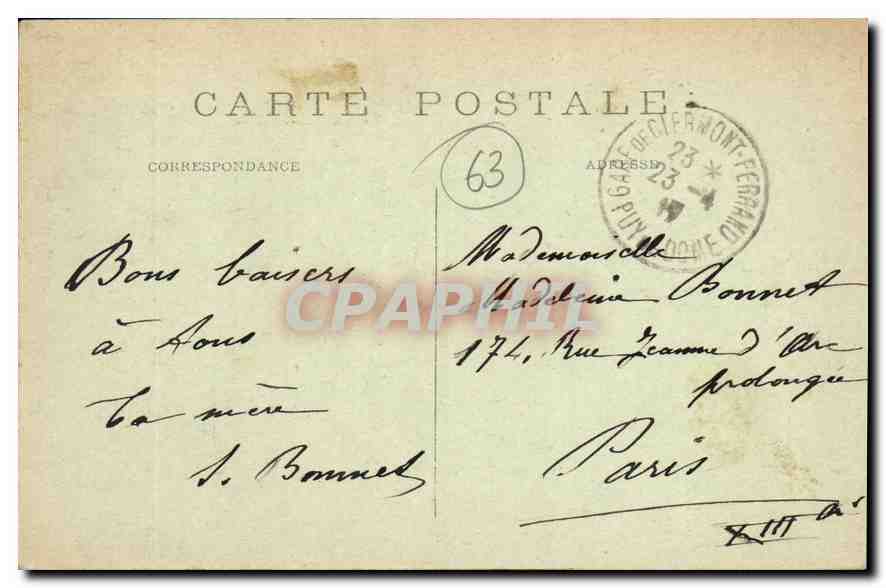 CARTE POSTALE
CORRESPONDANCE
ADRESSE
63
GARE DE CLERMONT-FERRAND
23
23 -4
PUY DE DOME
Bons baisers
à tous
Ta mère
S. Bonnet
Mademoiselle
Madeleine Bonnet
174, Rue Jeanne d'Arc
prolongée
Paris
XIII Ar.
CPAPHIL